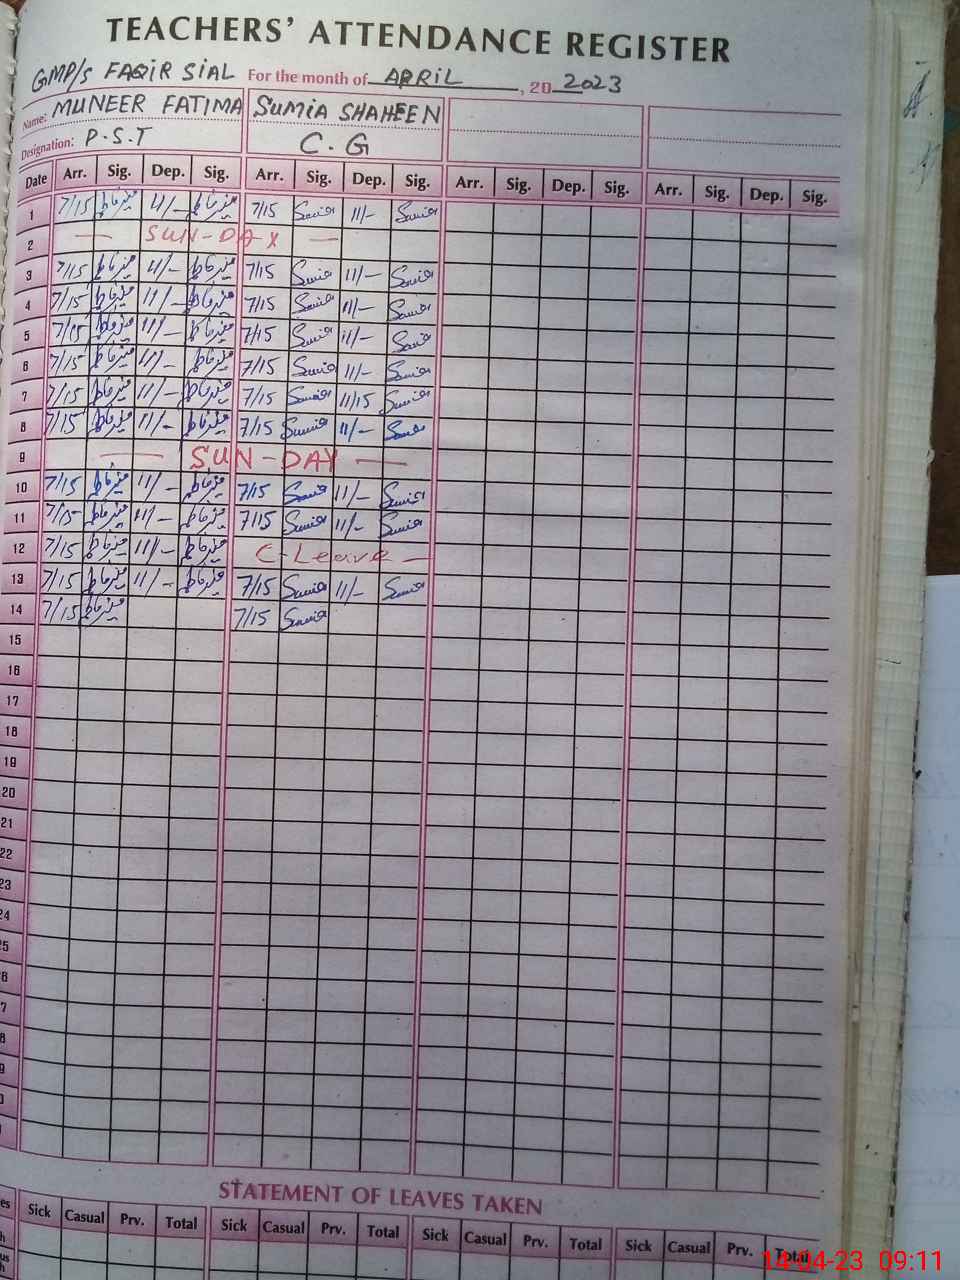 TEACHERS' ATTENDANCE REGISTER
GMP/s FAQIR SIAL For the month of APRIL, 20 2023
Name: MUNEER FATIMA SUMIA SHAHEEN
Designation: P.S.T C.G
Date Arr. Sig. Dep. Sig. Arr. Sig. Dep. Sig. Arr. Sig. Dep. Sig. Arr. Sig. Dep. Sig.
1 7/15 منیر فاطمہ 11/- منیر فاطمہ 7/15 Sumia 11/- Sumia
2 — SUN-DAY —
3 7/15 منیر فاطمہ 11/- منیر فاطمہ 7/15 Sumia 11/- Sumia
4 7/15 منیر فاطمہ 11/- منیر فاطمہ 7/15 Sumia 11/- Sumia
5 7/15 منیر فاطمہ 11/- منیر فاطمہ 7/15 Sumia 11/- Sumia
6 7/15 منیر فاطمہ 11/- منیر فاطمہ 7/15 Sumia 11/- Sumia
7 7/15 منیر فاطمہ 11/- منیر فاطمہ 7/15 Sumia 11/15 Sumia
8 7/15 منیر فاطمہ 11/- منیر فاطمہ 7/15 Sumia 11/- Sumia
9 — SUN-DAY —
10 7/15 منیر فاطمہ 11/- منیر فاطمہ 7/15 Sumia 11/- Sumia
11 7/15 منیر فاطمہ 11/- منیر فاطمہ 7/15 Sumia 11/- Sumia
12 7/15 منیر فاطمہ 11/- منیر فاطمہ C-Leave —
13 7/15 منیر فاطمہ 11/- منیر فاطمہ 7/15 Sumia 11/- Sumia
14 7/15 منیر فاطمہ 7/15 Sumia
15
16
17
18
19
20
21
22
23
24
25
STATEMENT OF LEAVES TAKEN
Sick Casual Prv. Total Sick Casual Prv. Total Sick Casual Prv. Total Sick Casual Prv. Total
14-04-23 09:11